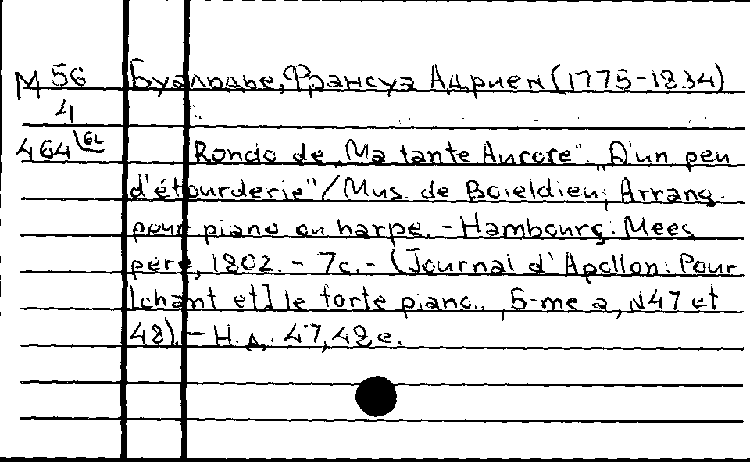 М 56 Буальдье, Франсуа Адриен (1775-1834)
4
464 Rondo de „Ma tante Aurore". „D'un peu
d'étourderie"/Mus. de Boieldieu; Arrang.
pour piano ou harpe. - Hambourg: Mees
père, 1802. - 7с. - (Journal d'Apollon: Pour
[chant et] le forte piano.. , 5-me a, N47 et
48). - Н. д. 47,48 e.